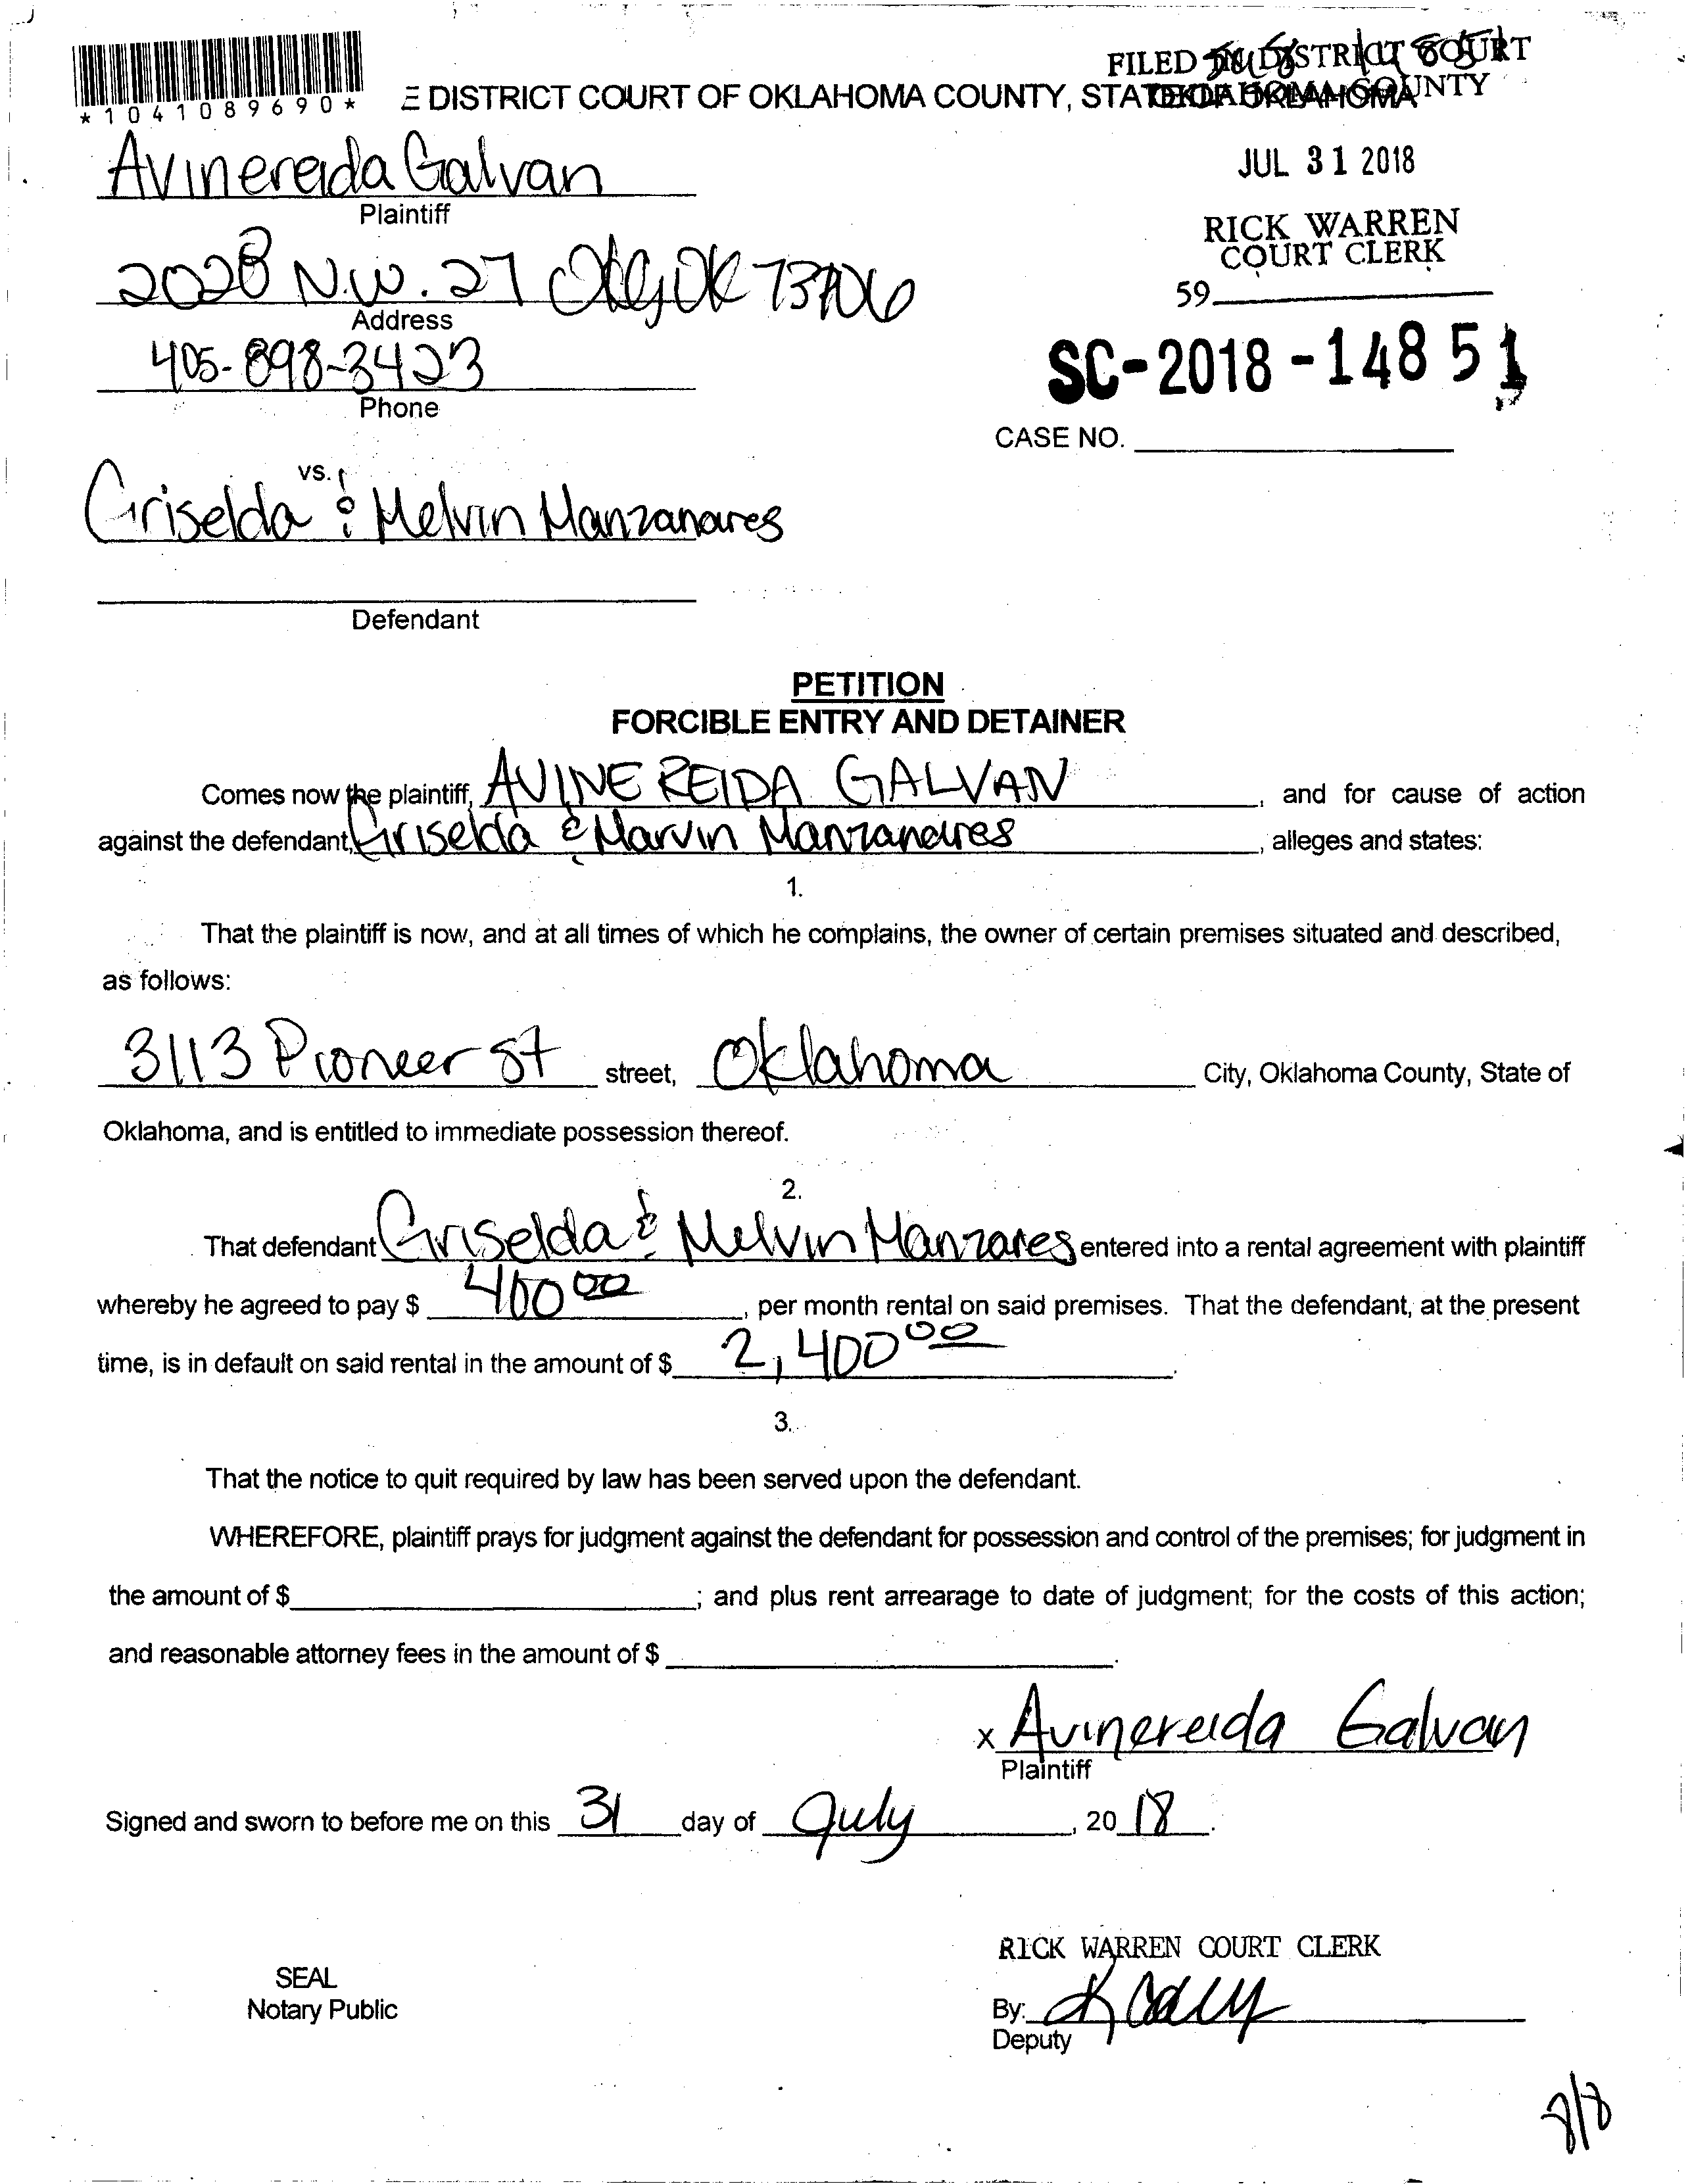 FILED IN DISTRICT COURT
OKLAHOMA COUNTY
*1041089690*
E DISTRICT COURT OF OKLAHOMA COUNTY, STATE OF OKLAHOMA
Avinereida Galvan
Plaintiff
JUL 31 2018
RICK WARREN
COURT CLERK
59
2028 N.W. 27 OKC, OK 73106
Address
405-898-3423
Phone
SC-2018-14851
CASE NO.
vs.
Griselda & Melvin Manzanares
Defendant
PETITION
FORCIBLE ENTRY AND DETAINER
Comes now the plaintiff, AVINEREIDA GALVAN, and for cause of action
against the defendant, Griselda & Marvin Manzanares, alleges and states:
1.
That the plaintiff is now, and at all times of which he complains, the owner of certain premises situated and described,
as follows:
3113 Pioneer St street, Oklahoma City, Oklahoma County, State of
Oklahoma, and is entitled to immediate possession thereof.
2.
That defendant Griselda & Melvin Manzares entered into a rental agreement with plaintiff
whereby he agreed to pay $ 400 00, per month rental on said premises. That the defendant, at the present
time, is in default on said rental in the amount of $ 2,400 00.
3.
That the notice to quit required by law has been served upon the defendant.
WHEREFORE, plaintiff prays for judgment against the defendant for possession and control of the premises; for judgment in
the amount of $ ; and plus rent arrearage to date of judgment; for the costs of this action;
and reasonable attorney fees in the amount of $ .
x Avinereida Galvan
Plaintiff
Signed and sworn to before me on this 31 day of July, 20 18.
RICK WARREN COURT CLERK
SEAL
Notary Public
By:
Deputy
8/8